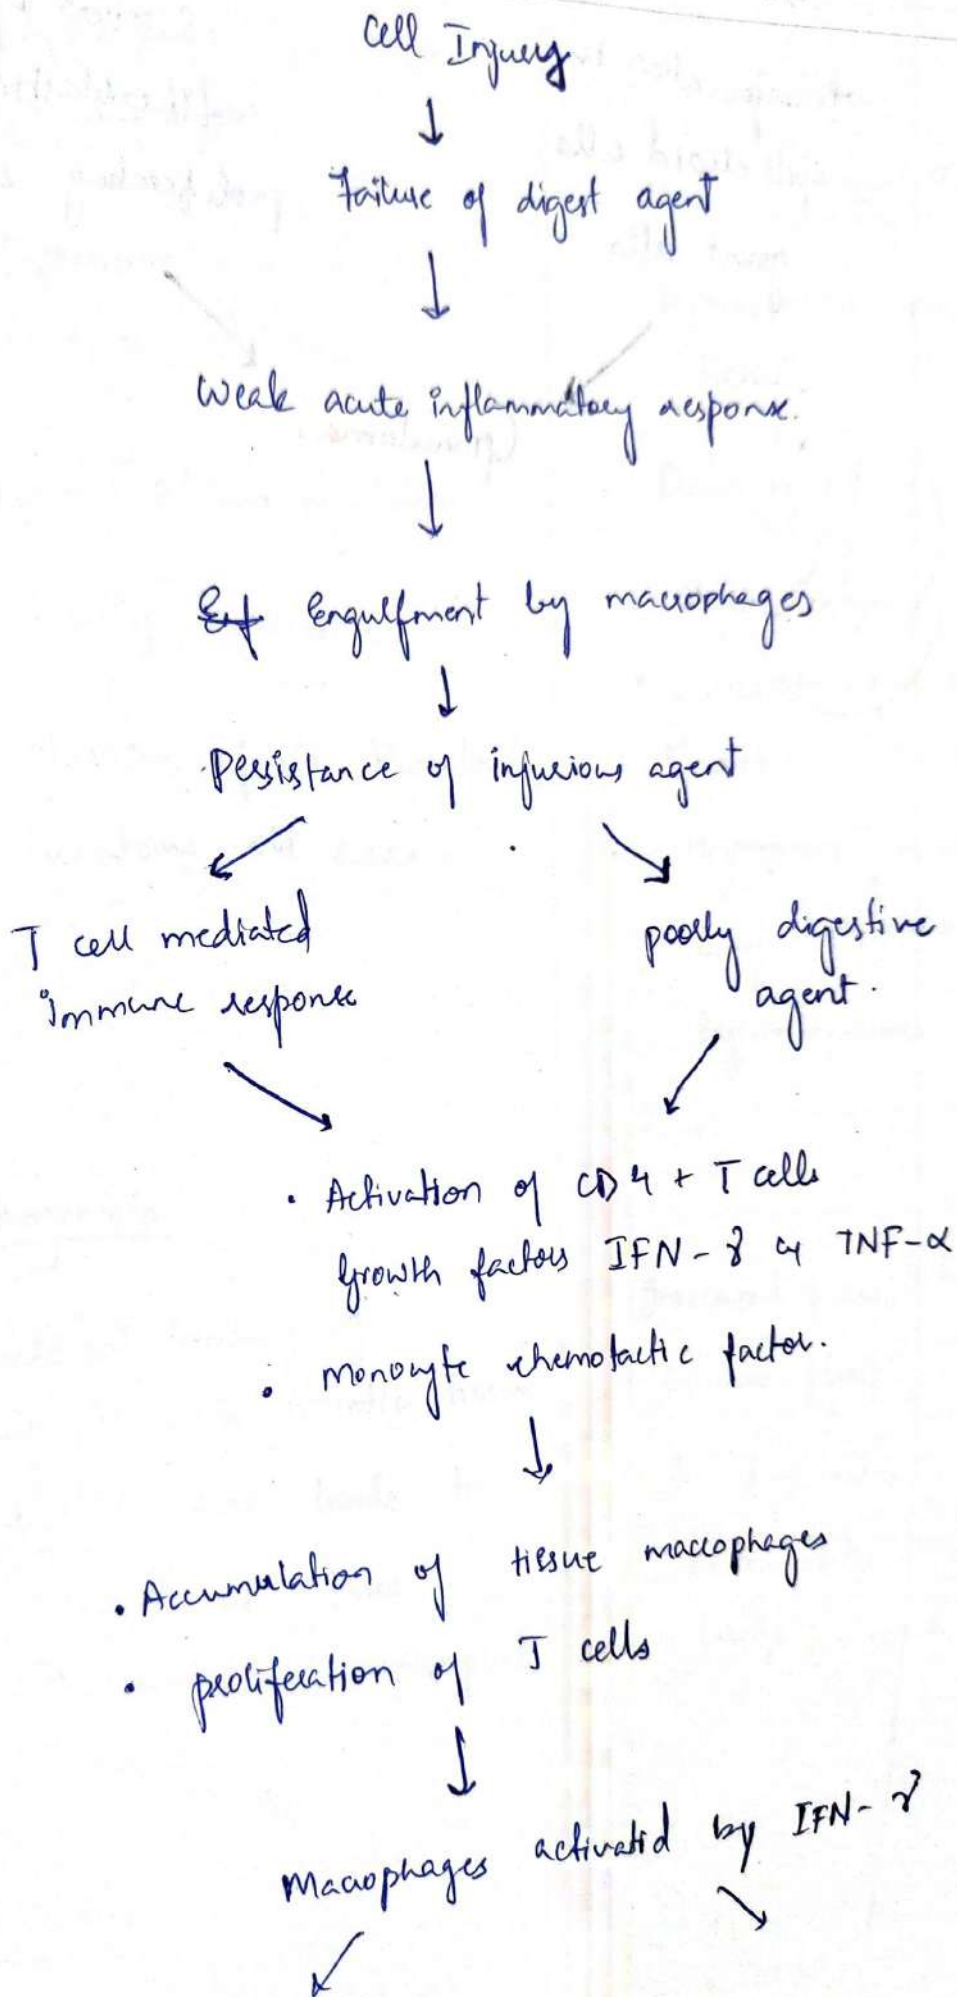 Cell Injury
↓
Failure of digest agent
↓
Weak acute inflammatory response.
↓
Engulfment by macrophages
↓
Persistance of injurious agent
↙ ↘
T cell mediated
immune response
poorly digestive
agent.
↘ ↙
• Activation of CD4+ T cells
Growth factors IFN-γ & TNF-α
• Monocyte chemotactic factor.
↓
• Accumulation of tissue macrophages
• proliferation of T cells
↓
Macrophages activated by IFN-γ
↙ ↘